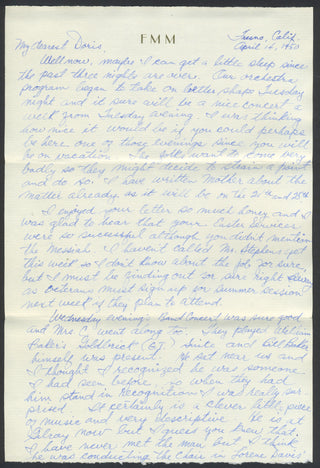 FMM
Fresno, Calif.
April 16, 1950
My dearest Doris,
Well now, maybe I can get a little sleep since
the past three nights are overs. Our orchestra
program began to take on better shape Tuesday
night and it sure will be a nice concert a
week from Tuesday evening. I was thinking
how nice it would be if you could perhaps
be here one of those evenings since you will
be on vacation. The folks want to come very
badly so they might decide to strain a point
and do so. I have written Mother about the
matter already as it will be on the 21st and 25th
I enjoyed your letter so much honey and I
was glad to hear that your Easter services
were so successful although you didn't mention
the Messiah. I haven't called Mr. Stephens yet
this week so I don't know about the job for sure,
but I must be finding out for sure right away
as veterans must sign up for summer session
next week if they plan to attend.
Wednesday evening's Band Concert was sure good
and Mrs. C. went along too. They played William
Baker's Goldbrick (G.I.) Suite and Bill Baker
himself was present. He set near us and
I thought I recognized he was someone
I had seen before, so when they had
him stand in recognition I was really sur-
prised. It certainly is a clever little piece
of music and very descriptive. He is at
now but I guess you knew that.
I have never met the man but I think
he was conducting the Choir in Lorene Davis'